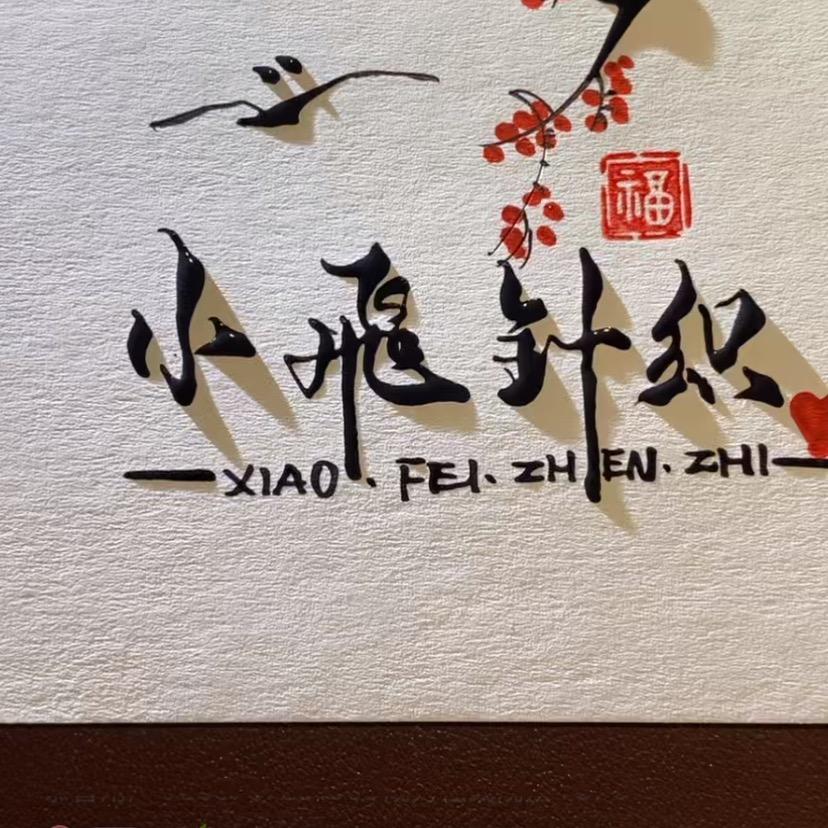 福
小飛針织
XIAO. FEI. ZHEN. ZHI